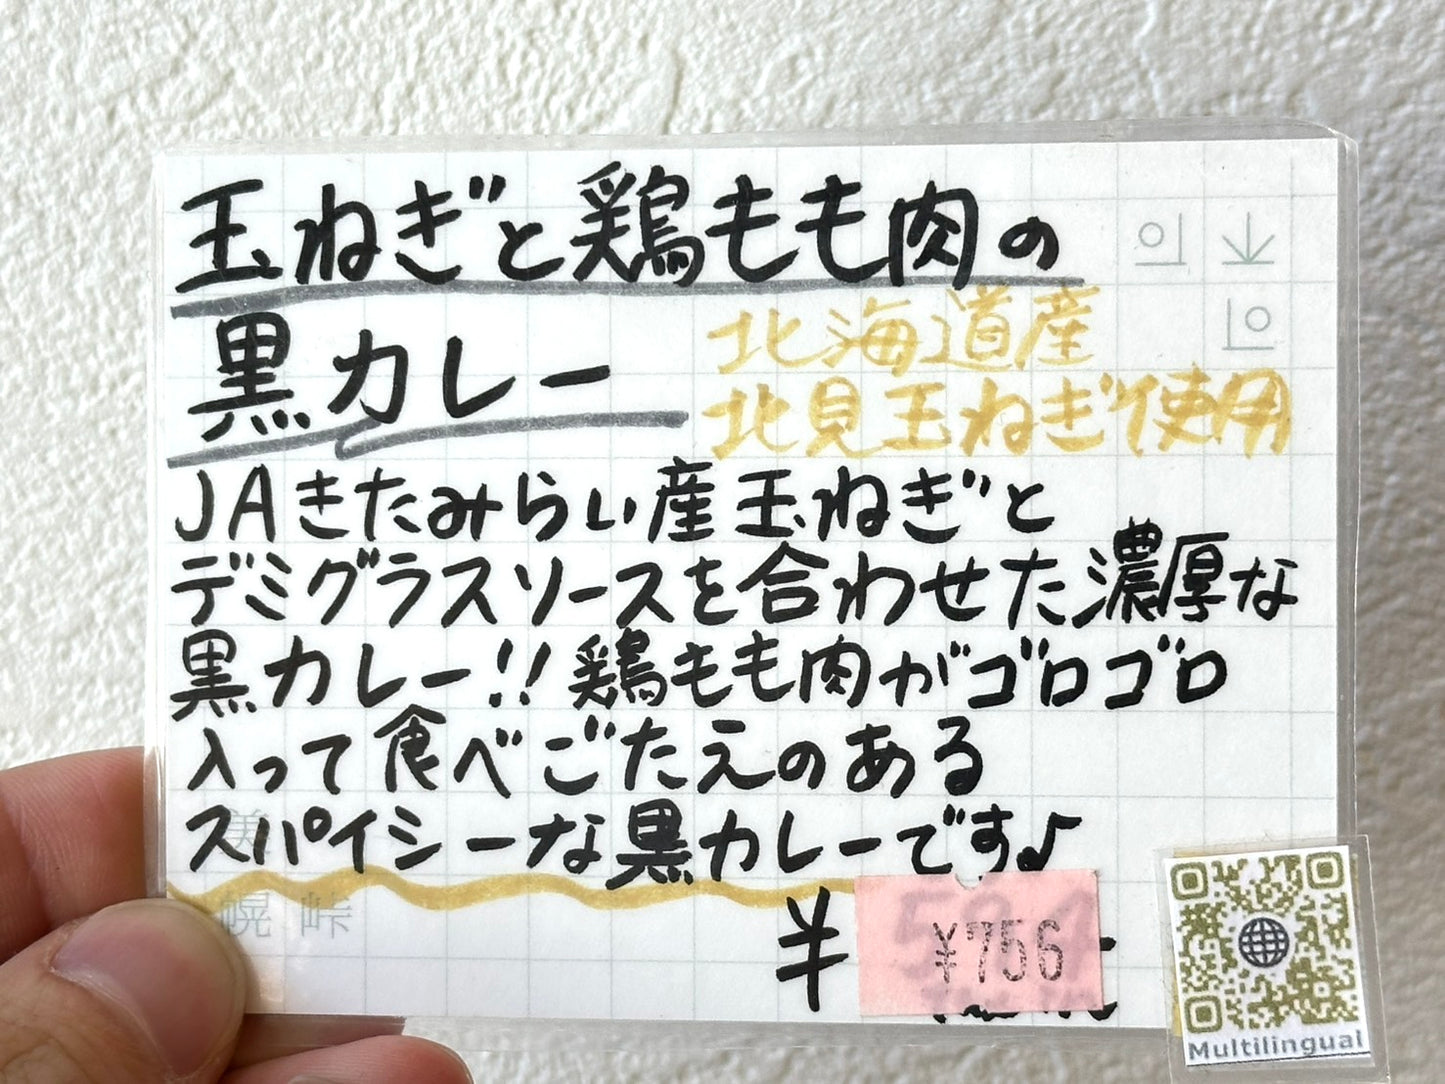 玉ねぎと鶏もも肉の
黒カレー
北海道産
北見玉ねぎ使用
JAきたみらい産玉ねぎと
デミグラスソースを合わせた濃厚な
黒カレー!!鶏もも肉がゴロゴロ
入って食べごたえのある
スパイシーな黒カレーです♪
美
幌峠
¥
¥756
Multilingual